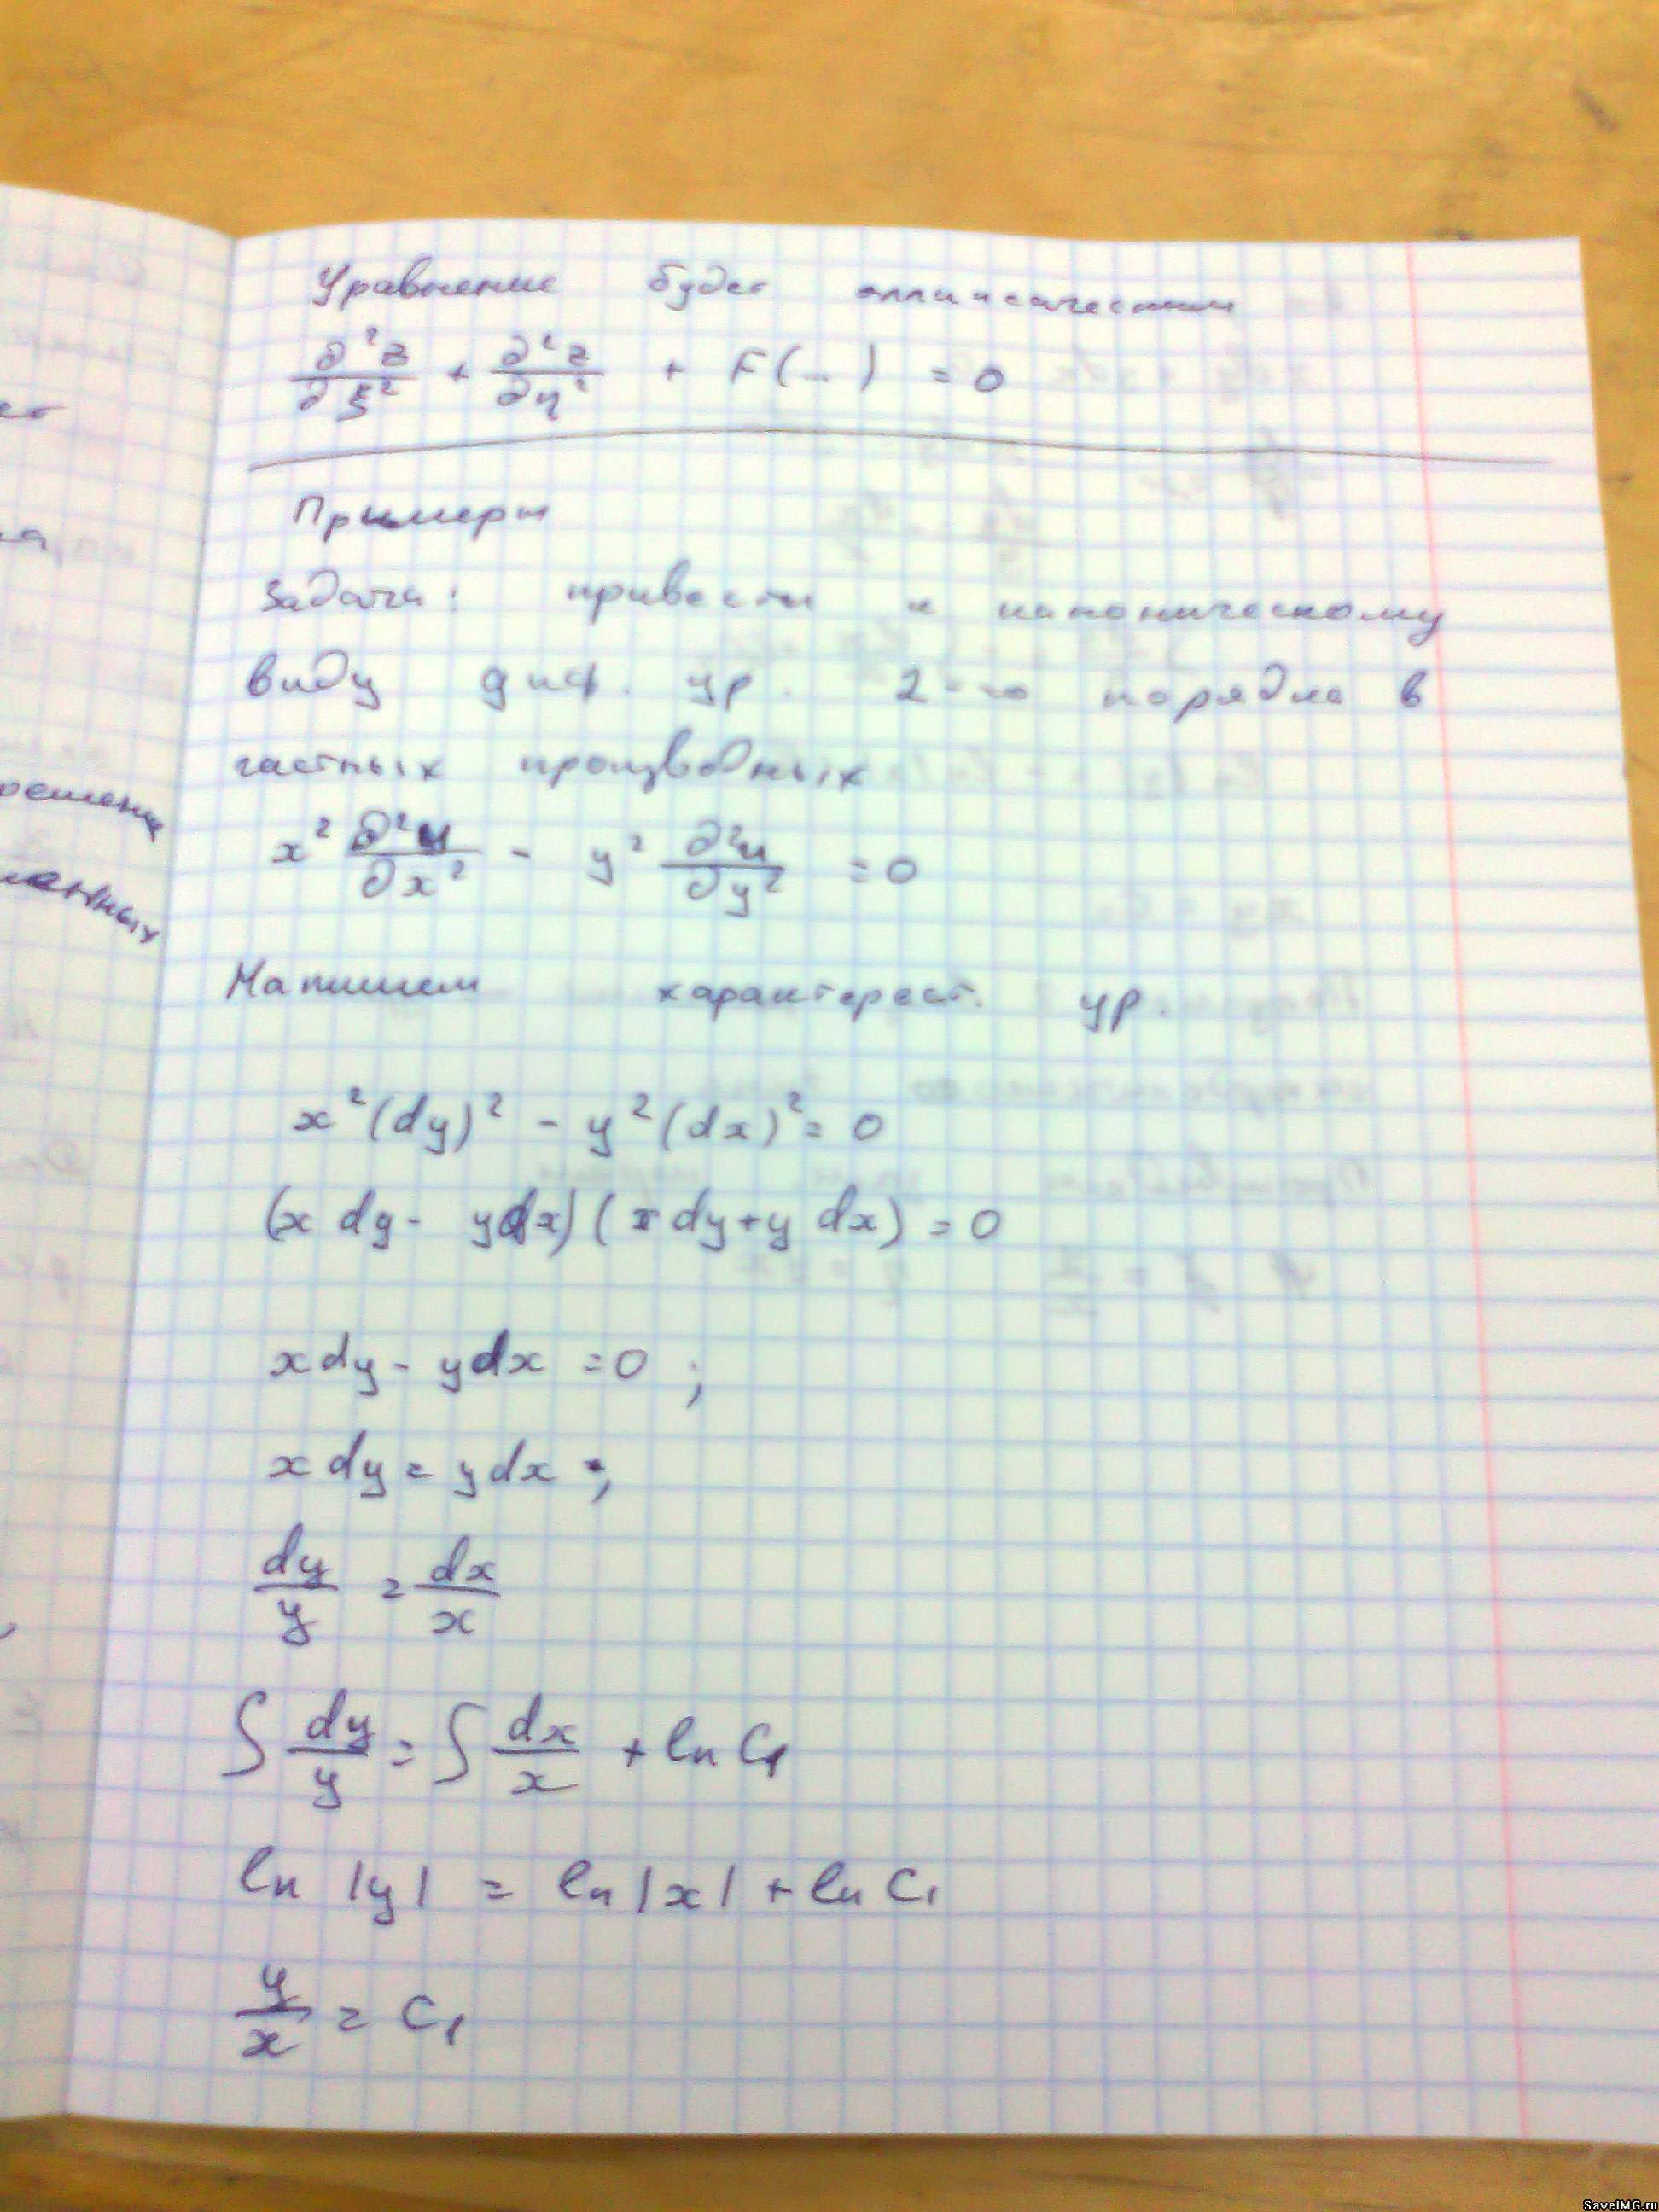 Уравнение будет эллиптическим
∂²z/∂ξ² + ∂²z/∂η² + F(...) = 0
Примеры
Задача: привести к каноническому
виду диф. ур. 2-го порядка в
частных производных
x² ∂²u/∂x² - y² ∂²u/∂y² = 0
Напишем характерест. ур.
x²(dy)² - y²(dx)² = 0
(x dy - ydx)(x dy + y dx) = 0
xdy - ydx = 0 ;
x dy = y dx ;
dy/y = dx/x
∫ dy/y = ∫ dx/x + ln C₁
ln |y| = ln |x| + ln C₁
y/x = C₁
решение
SaveIMG.ru